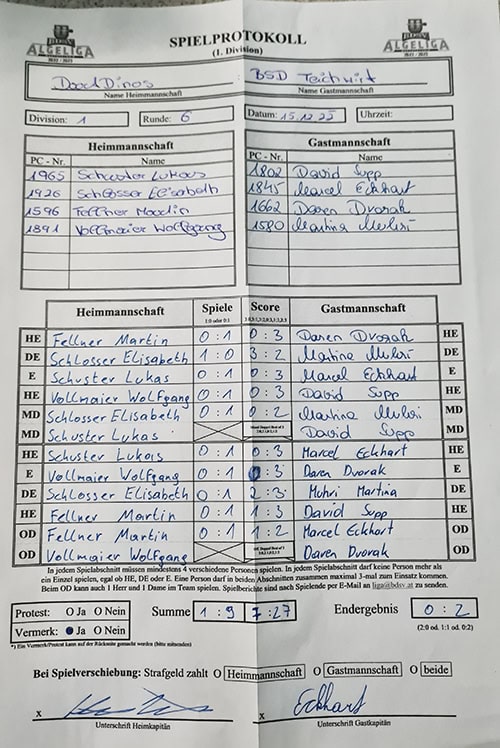 ALGELIGA SPIELPROTOKOLL ALGELIGA
(1. Division)
DartDinos : BSD Teichwirt
Name Heimmannschaft Name Gastmannschaft
Division: 1 Runde: 6 Datum: 15.12.22 Uhrzeit:
Heimmannschaft Gastmannschaft
PC - Nr. Name PC - Nr. Name
1965 Schuster Lukas 1802 David Supp
1926 Schlosser Elisabeth 1845 Marcel Eckhart
1596 Fellner Martin 1662 Daren Dvorak
1891 Vollmaier Wolfgang 1580 Martina Muhri
Heimmannschaft Spiele Score Gastmannschaft
1:0 oder 0:1
HE Fellner Martin 0 : 1 0 : 3 Daren Dvorak HE
DE Schlosser Elisabeth 1 : 0 3 : 2 Martina Muhri DE
E Schuster Lukas 0 : 1 0 : 3 Marcel Eckhart E
HE Vollmaier Wolfgang 0 : 1 0 : 3 David Supp HE
MD Schlosser Elisabeth 0 : 1 0 : 2 Martina Muhri MD
MD Schuster Lukas David Supp MD
HE Schuster Lukas 0 : 1 0 : 3 Marcel Eckhart HE
E Vollmaier Wolfgang 0 : 1 0 : 3 Daren Dvorak E
DE Schlosser Elisabeth 0 : 1 2 : 3 Muhri Martina DE
HE Fellner Martin 0 : 1 1 : 3 David Supp HE
OD Fellner Martin 0 : 1 1 : 2 Marcel Eckhart OD
OD Vollmaier Wolfgang Daren Dvorak OD
In jedem Spielabschnitt müssen mindestens 4 verschiedene Personen spielen. In jedem Spielabschnitt darf keine Person mehr als
ein Einzel spielen, egal ob HE, DE oder E. Eine Person darf in beiden Abschnitten zusammen maximal 3-mal zum Einsatz kommen.
Beim OD kann auch 1 Herr und 1 Dame im Team spielen. Spielberichte sind nach Spielende per E-Mail an liga@bdsv.at zu senden.
Protest: O Ja O Nein Summe 1 : 9 7 : 27 Endergebnis 0 : 2
Vermerk: Ja O Nein (2:0 od. 1:1 od. 0:2)
*) Ein Vermerk/Protest kann auf der Rückseite gemacht werden (bitte mitsenden)
Bei Spielverschiebung: Strafgeld zahlt O Heimmannschaft O Gastmannschaft O beide
x x Eckhart
Unterschrift Heimkapitän Unterschrift Gastkapitän